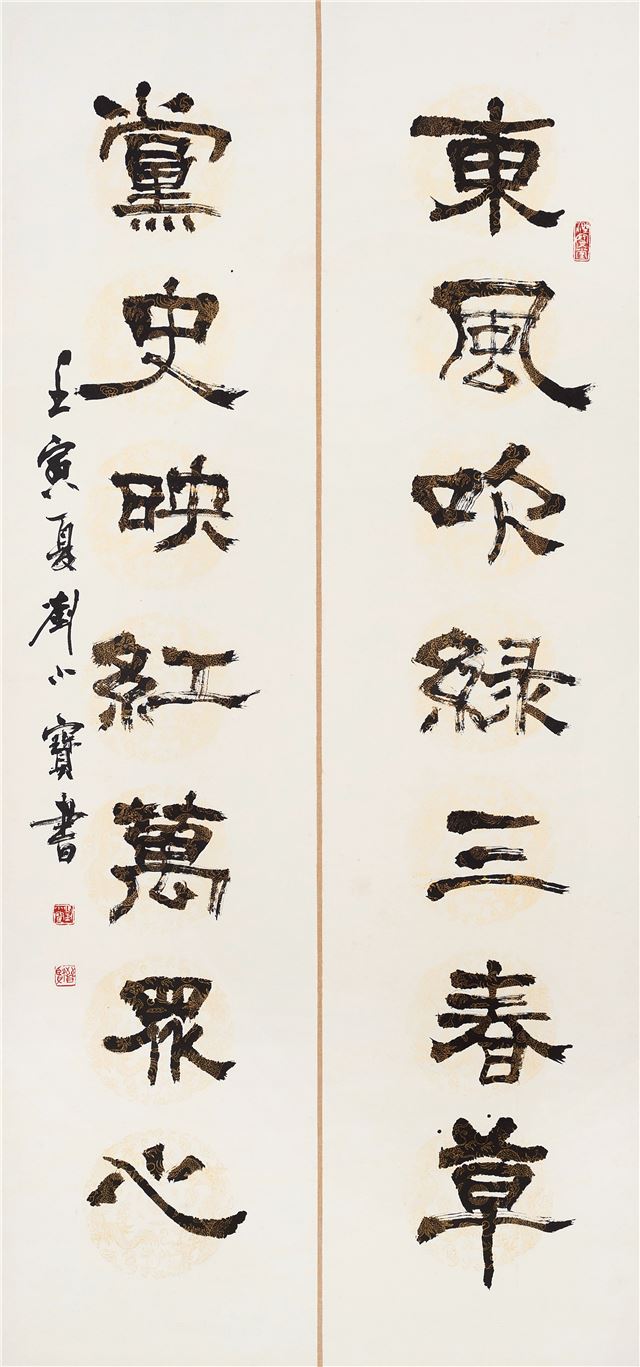 東風吹緑三春草
黨史映紅萬眾心
壬寅夏劉小寶書